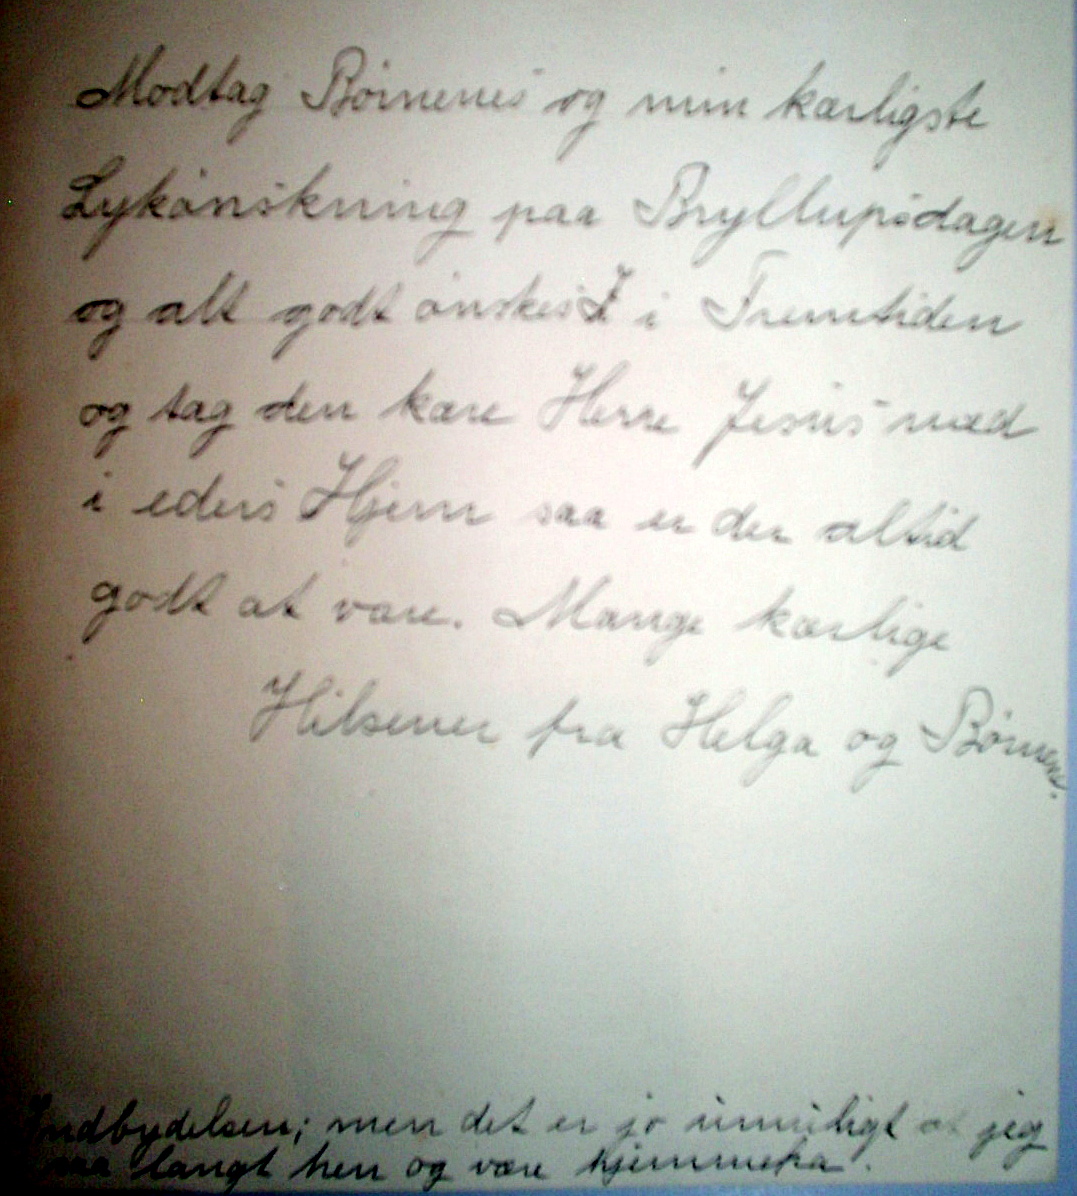 Modtag Børnenes og min kærligste
Lykønskning paa Bryllupsdagen
og alt godt ønskes I i Fremtiden
og tag den kære Herre Jesus med
i eders Hjem saa er der altid
godt at være. Mange kærlige
Hilsener fra Helga og Børnene.
Indbydelsen; men det er jo umuligt at jeg
saa langt hen og være hjemmefra.